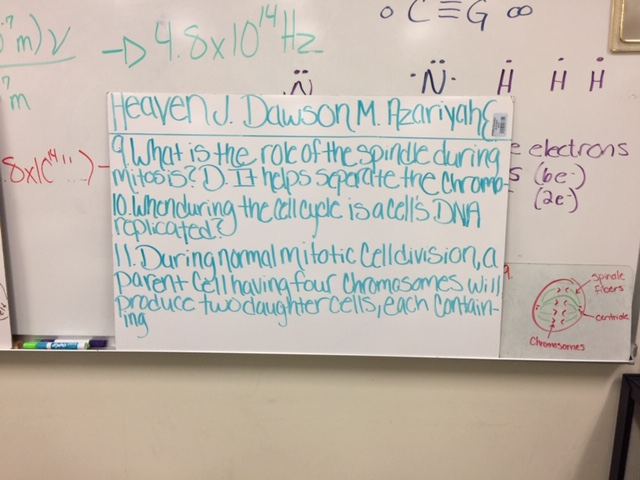 m) ν → 4.8x10¹⁴Hz
m
o C≡G oo
N̈ ·N̈· Ḣ Ḣ Ḣ
8x10(¹⁴
Heaven J. Dawson M. Azariyah
9. What is the role of the spindle during
mitosis? D. It helps separate the chromo-
10. When during the cell cycle is a cell's DNA
replicated?
11. During normal mitotic cell division, a
parent cell having four chromosomes will
produce two daughter cells, each contain-
ing
e electrons
s (6e⁻)
(2e⁻)
9.
spindle
fibers
centriole
Chromosomes
EXPO